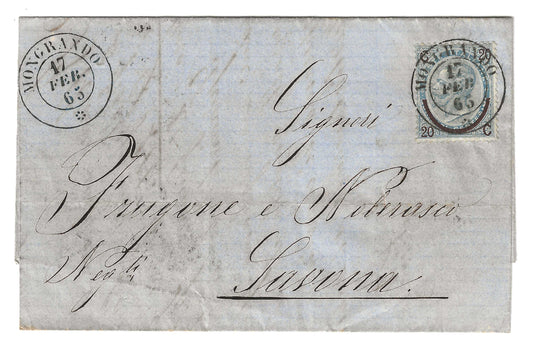 MONGRANDO
17
FEB.
65
MONGRANDO
17
FEB
65
20 C
20 C
Signori
Frugone e
Neg.ti
Savona.